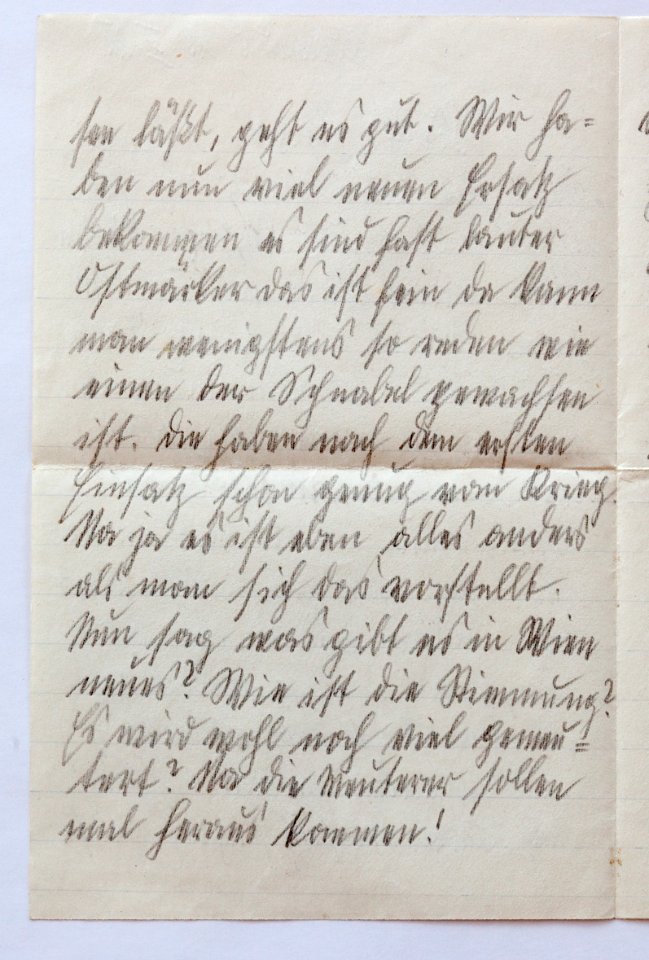 sen läßt, geht es gut. Wir ha=
ben nun viel neuen Ersatz
bekommen es sind fast lauter
Ostmärker das ist fein da kann
man wenigstens so reden wie
einen der Schnabel gewachsen
ist. Die haben nach dem ersten
Einsatz schon genug vom Krieg.
Na ja es ist eben alles anders
als man sich das vorstellt.
Nun sag was gibt es in Wien
neues? Wie ist die Stimmung?
Es wird wohl noch viel gemeu=
tert? Na die Meuterer sollen
mal heraus kommen!